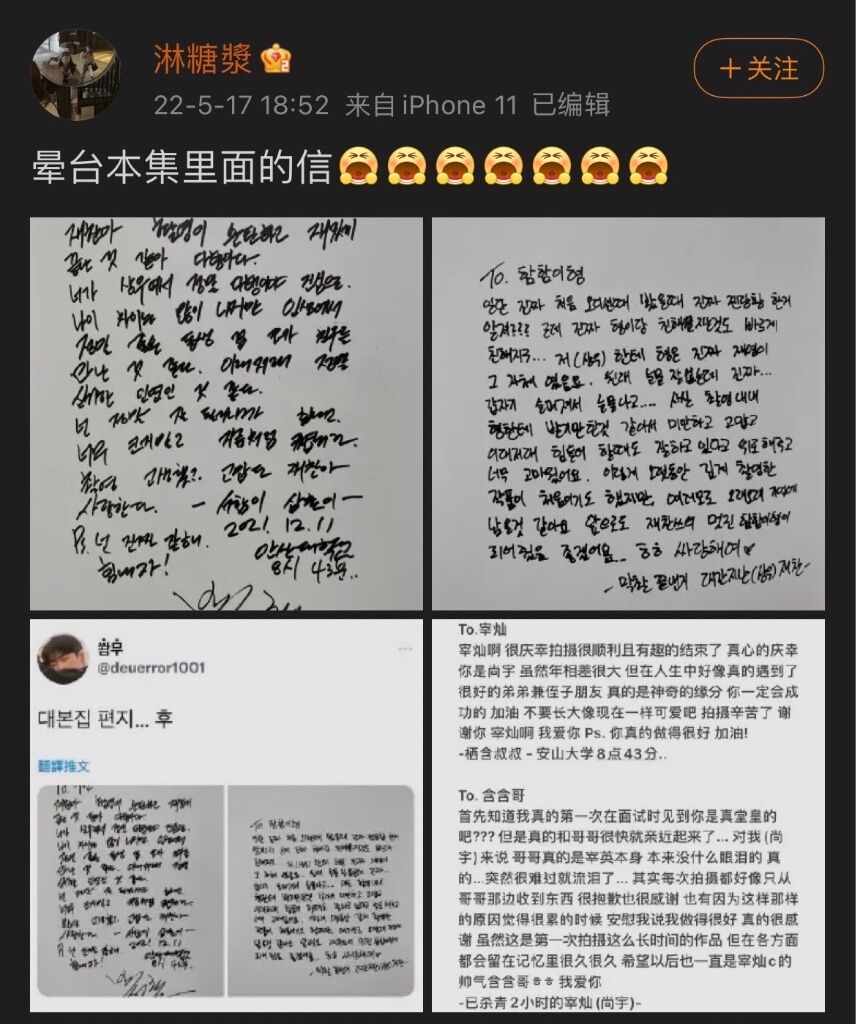 淋糖漿
22-5-17 18:52 来自 iPhone 11 已编辑
＋关注
晕台本集里面的信
재찬아 촬영이 무탈하고 재밌게
끝난 것 같아 다행이다.
너가 상우여서 정말 다행이야 진심으로.
나이 차이는 많이 나지만 인생에서
정말 좋은 동생 겸 조카 친구를
만난 것 같다.
신기한 인연인 것 같다.
넌
너무
촬영 고생했고. 고맙고 재찬아
사랑한다. - 서함이 삼촌이 -
2021. 12. 11
P.s 넌 진짜 잘해.
힘내자!
안산대학교
8시 43분..
To. 함함이형
일단 진짜 처음 오디션때 봤을때 진짜 찐당황 한거
알죠??? 근데 진짜 형이랑 친해졌던것도 빠르게
친해지구... 저(상우)한테 형은 진짜 재영이
그 자체 였음요. 원래 눈물 잘 없는데 진짜...
갑자기 슬퍼져서 눈물나고.... 사실 촬영 내내
형한테 받기만한것 같아서 미안하고 고맙고
이래저래 힘들어 할때도 잘하고 있다고 위로해주고
너무 고마웠어요. 이렇게 오랫동안 길게 촬영한
작품이 처음이기도 했지만, 여러모로 오래오래 기억에
남을것 같아요 앞으로도 재찬쓰의 멋진 함함이형이
되어줬음 좋겠어요.. ㅎㅎ 싸랑해여♥
- 막촬 끝낸게 2시간지난(상우)재찬 -
쫨후
@deuerror1001
대본집 편지... 후
翻譯推文
To.宰灿
宰灿啊 很庆幸拍摄很顺利且有趣的结束了 真心的庆幸
你是尚宇 虽然年相差很大 但在人生中好像真的遇到了
很好的弟弟兼侄子朋友 真的是神奇的缘分 你一定会成
功的 加油 不要长大像现在一样可爱吧 拍摄辛苦了 谢
谢你 宰灿啊 我爱你 Ps. 你真的做得很好 加油!
-栖含叔叔 - 安山大学8点43分..
To. 含含哥
首先知道我真的第一次在面试时见到你是真堂皇的
吧??? 但是真的和哥哥很快就亲近起来了... 对我 (尚
宇) 来说 哥哥真的是宰英本身 本来没什么眼泪的 真
的...突然很难过就流泪了... 其实每次拍摄都好像只从
哥哥那边收到东西 很抱歉也很感谢 也有因为这样那样
的原因觉得很累的时候 安慰我说我做得很好 真的很感
谢 虽然这是第一次拍摄这么长时间的作品 但在各方面
都会留在记忆里很久很久 希望以后也一直是宰灿c的
帅气含含哥ㅎㅎ 我爱你
-已杀青2小时的宰灿 (尚宇)-